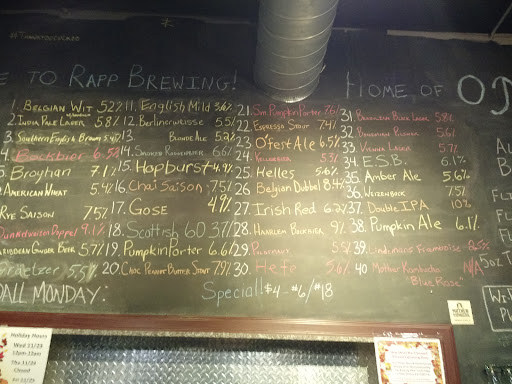 #TANKATODVCADO
E TO RAPP BREWING!
HOME OF
1. BELGIAN WIT 5.2%
2. INDIA PALE LAGER 5.8%
3. Southern English Brown 5.4%
4. Bockbier 6.5%
5. Broyhan 7.1%
AMERICAN WHEAT 5.4
RYE SAISON 7.5%
Dunkelweizen Doppel 9.1%
CARIBBEAN GINGER BEER 5.7%
Graetzer 5.5%
11. English Mild 3.6%
12. Berlinerweisse 5.5%
13. BLONDE ALE 5.2%
14. SMOKED 6.6%
15. Hopburst 4.9%
16. Chai Saison 7.5%
17. GOSE 4%
18. Scottish 60 3.7%
19. PUMPKIN PORTER 6.6%
20. CHOC PEANUT BUTTER STOUT 7.9%
21. Sm. Pumpkin Porter 7.6%
22. Espresso Stout 7.4%
23. OFest Ale 6.5%
24. KELLERBIER 5.3%
25. Helles 5.6%
26. Belgian Dubbel 8.4%
27. Irish Red 6.2%
28. HAARLEM BOKBIER 9%
29. 5.5%
30. Hefe 5.6%
31. BLACK LAGER 5.8%
32. PILSNER 5.6%
33. VIENNA LAGER 5.7%
34. E.S.B. 6.1%
35. Amber Ale 5.6%
36. WEIZENBOCK 7.5%
37. DOUBLE IPA 10%
38. Pumpkin Ale 6.1%
39. Lindemans Framboise 2.5%
40. Mother Kombucha N/A
"Blue Rose"
Special! $4 - #6/#18
ALL MONDAY:
5oz T
Holiday Hours
Wed 11/23
12pm-12am
Thu 11/24
Closed
Fri 11/25